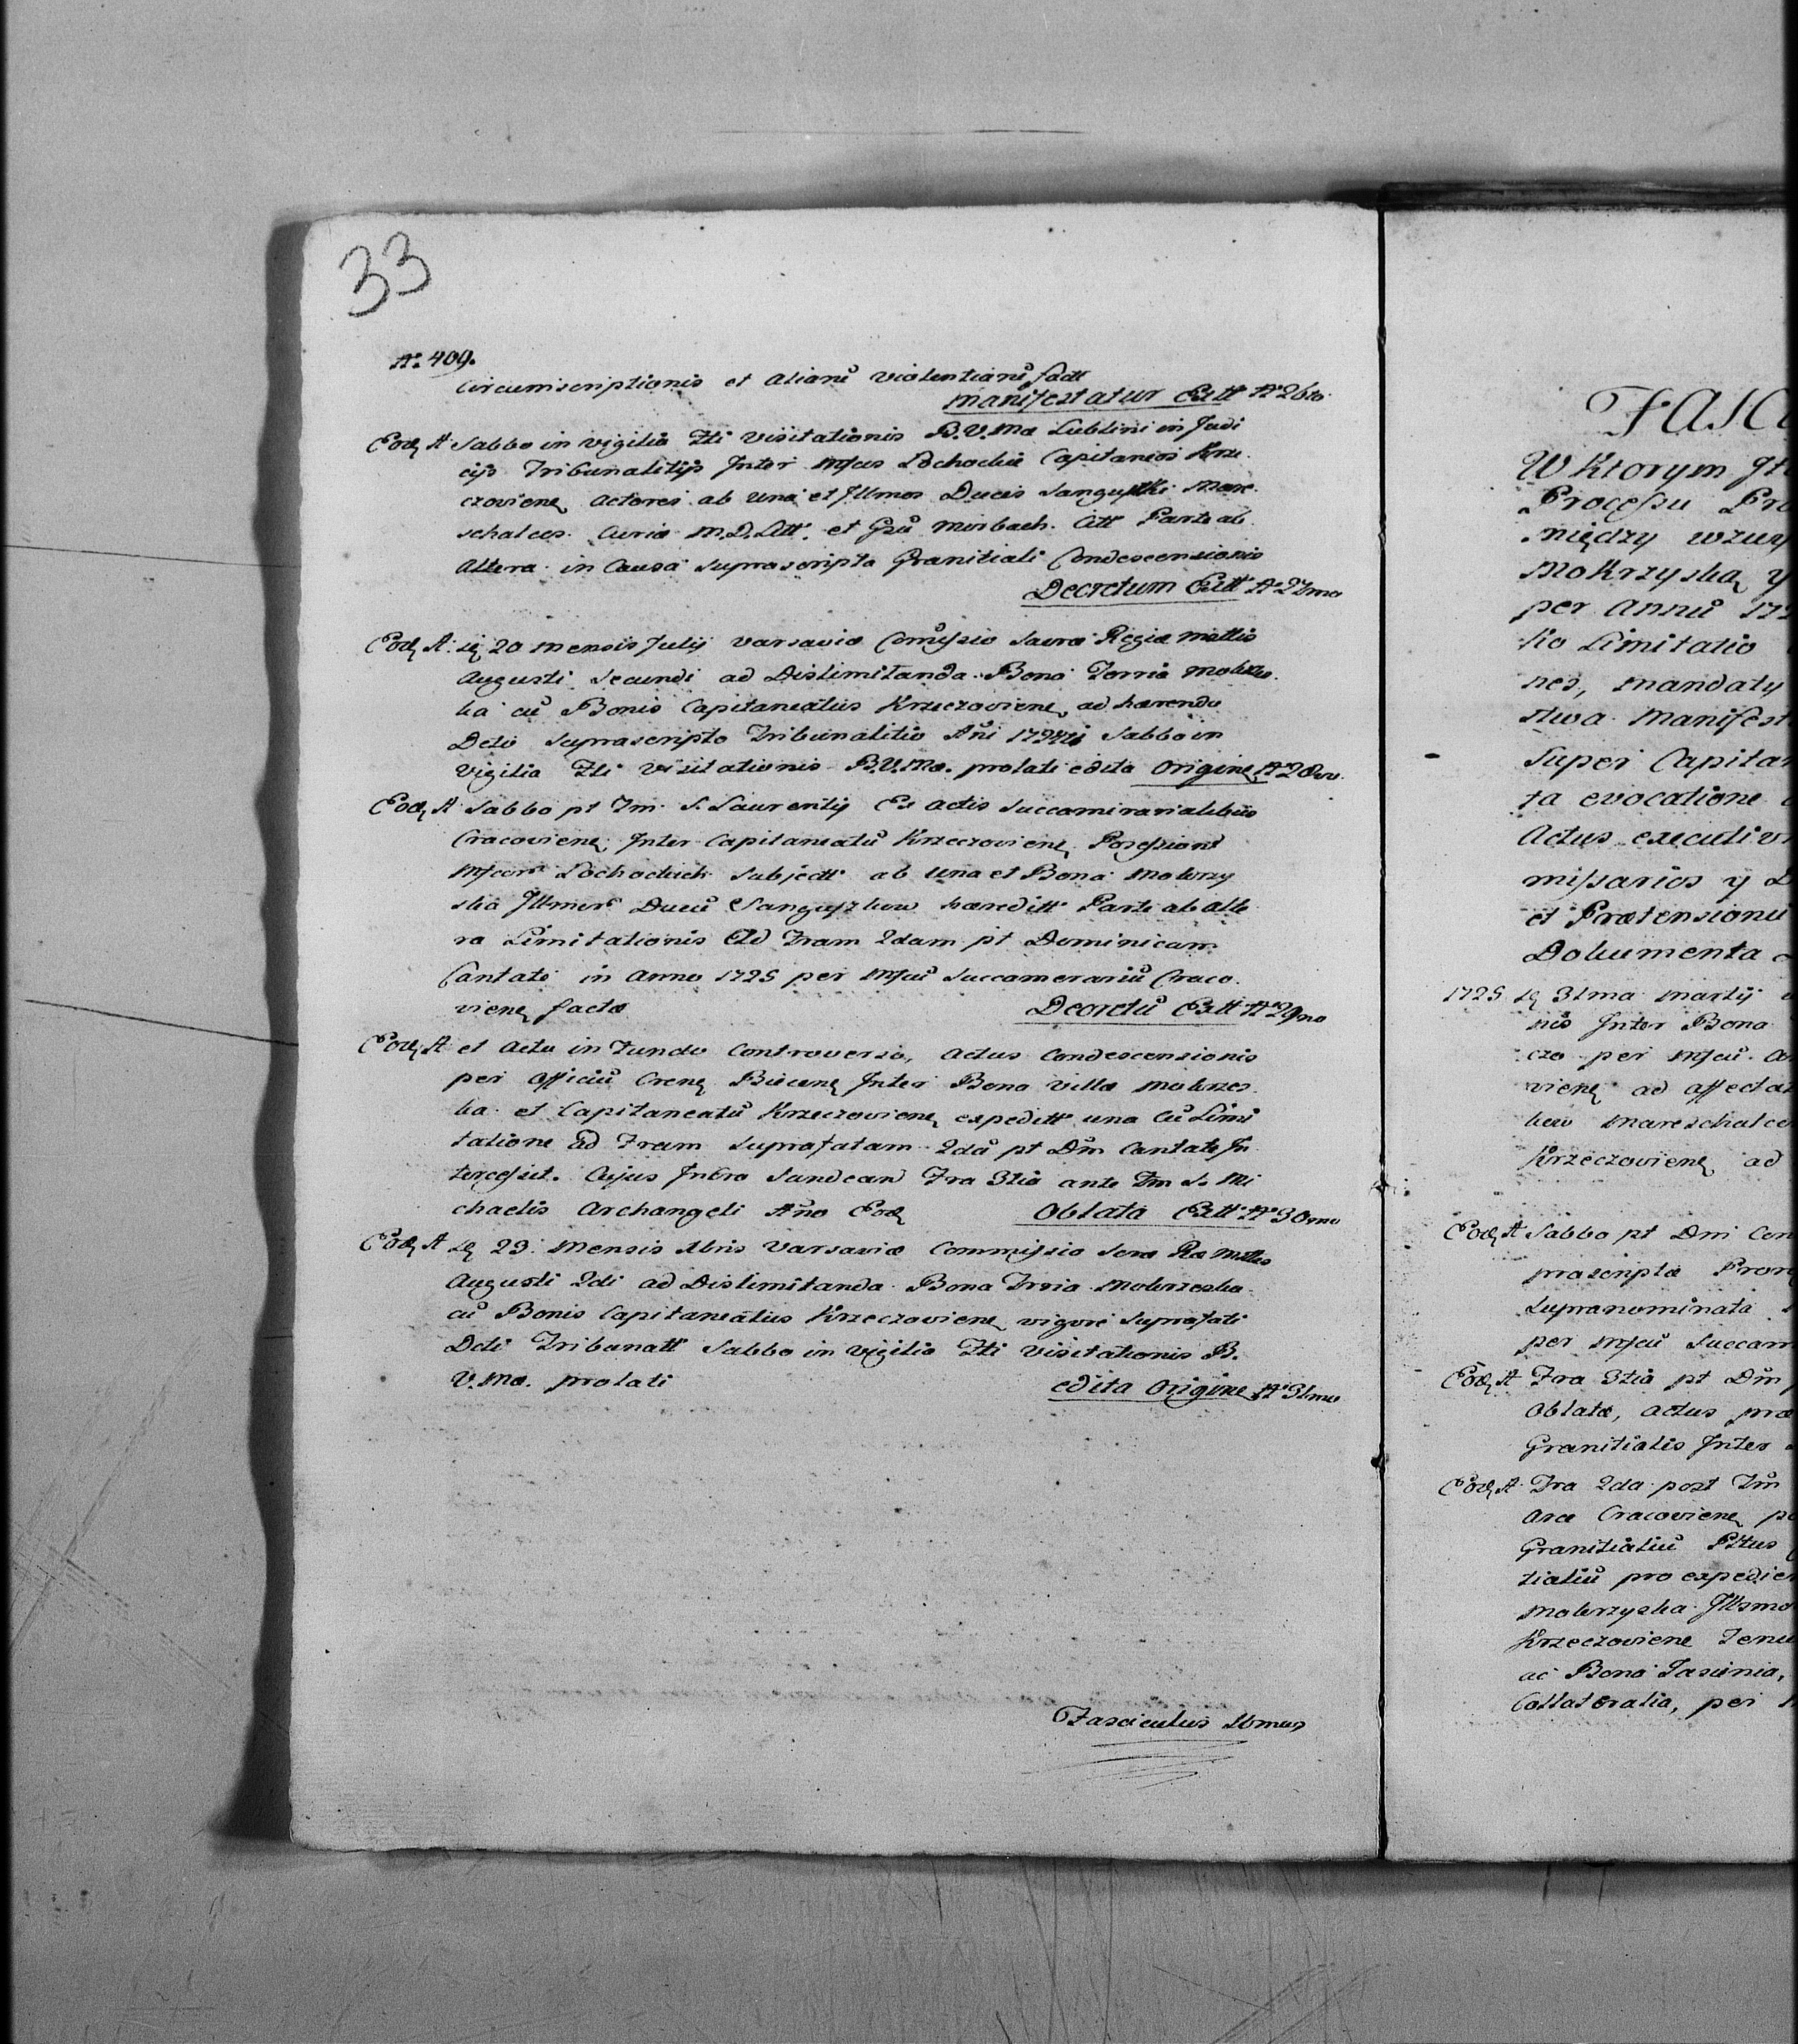 33
No. 409.
Circumscriptionis et aliarū violentiarū fact
manifestatur Extt No 26to.
Eodę A. Sabbo in vigilia Fti Visitationis B.V.Mæ Lublini in Judi
cijs Tribunalitijs Inter Mfcos Lochockie Capitaneos Krze
czovienę actores ab una et Illmos Duces Sanguszki Mare
schalcos Curiæ M.D.Litt. et Gsū Mirbach Citt Parte ab
altera in Causa suprascripta Granitiali Condescensionis
Decretum Extt No 27mo
Eodę A. dę 20 mensis Julij Varsaviæ Comissio Sacræ Regiæ Mattis
Augusti Secundi ad Dislimitanda Bona Terria Mokrzes
ka cū Bonis Capitaneatus Krzeczovienę ad hærendo
Deto Suprascripto Tribunalitio Ani Sabbo in
Vigilia Fti Visitationis B.V.Mæ. prolati edita Origine No 28vo.
Eodę A Sabbo pt Fm S. Laurentij Ex Actis Succamerarialibus
Cracovienę Inter Capitaneatū Krzeczovienę Possessionē
Mfcorū Lochockich Subject ab una et Bona Mokrzy
ska Illmorū Ducū Sanguszkow hæreditt Parte ab alte
ra Limitationis Ad Fram 2dam pt Dominicam
Cantate in Anno 1725 per Mfcū Succamerariū Craco
vienę factæ Decretū Extt No 29no
Eodę A. et Actu in Fundo Controverso, Actus Condescensionis
per Officiū Crenę Biecenę Inter Bona Villæ Mokrzes
ka et Capitaneatū Krzeczovienę expeditt una cū Limi
tatione ad Fram Suprafatam 2dā pt Dm Cantate In
tercessit. Cujus Intra Sandecan Fra 3tia ante Fm S. Mi
chaelis Archangeli Ano Eodę Oblata Extt No 30mo
Eodę A dę 23. Mensis Xbris Varsaviæ Commissio Scræ Ræ Mttis
Augusti 2di ad Dislimitanda Bona Trria Mokrzeska
cū Bonis Capitaneatus Krzeczovienę vigore Suprafati
Deti Tribunatt Sabbo in vigilia Fti Visitationis B.
V.Mæ. prolati edita Origine No 31mo
Fasciculus
FASC
W Ktorym
Processu
między
Mokrzyską y
per Annū
Limitatio
nes, mandaty
stwa. Manifest
Super Capita
ta evocatione
Actus executivi
missarios y
et Prætensionū
Dokumenta
1725 dę 31ma Martij
nis Inter Bona
czo per Mfcū
vienę ad affecta
kow Mareschalco
Krzeczovienę ad
Eodę A Sabbo pt Dm
præscripta
Supranominata
per Mfcū Succam
Eodę A Fra 3tia pt Dm
Oblatæ, Actus præ
Granitialis Inter
Eodę A. Fra 2da post Fm
Arce Cracovienę
Granitialiū
tialiū pro expedien
Mokrzyska Illsmo
Krzeczovienę Tenu
ac Bona Jasienia,
Collateralia, per